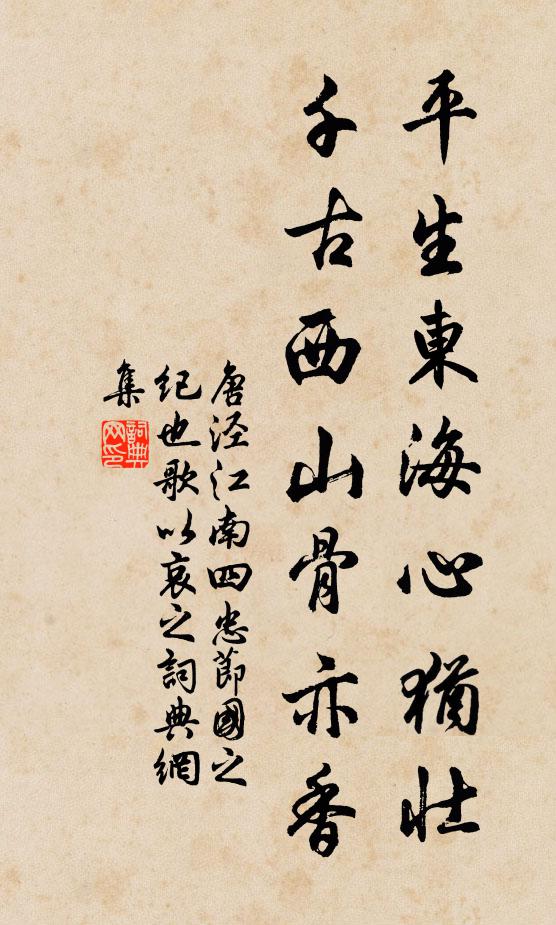 平生東海心猶壯
千古西山骨亦香
唐泾江南四忠節國之
纪也歌以哀之詞典網
集
詞典
网印